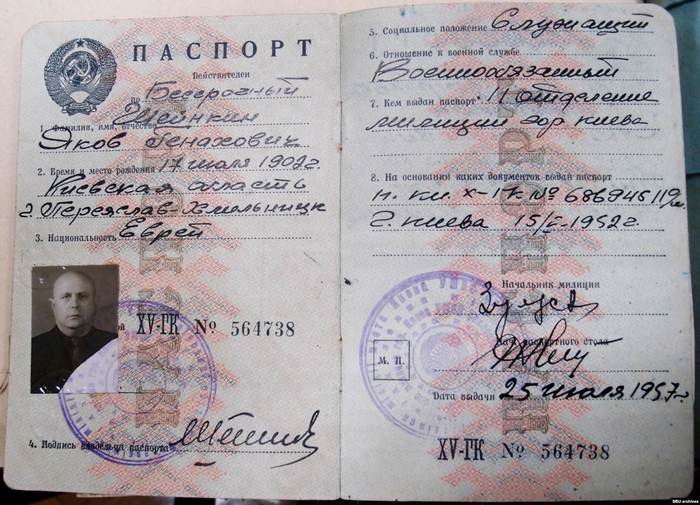 ПАСПОРТ
Действителен
по Бессрочный
Шейнкин
1. Фамилия, имя, отчество
Яков Генахович
2. Время и место рождения 17 июля 1902 г
Киевская область
г. Переяслав-Хмельницк
3. Национальность Еврей
XV-ГК № 564738
4. Подпись владельца паспорта
5. Социальное положение Служащий
6. Отношение к военной службе
Военнообязанный
7. Кем выдан паспорт 11 отделение
милиции гор Киева
8. На основании каких документов выдан паспорт
г. Киева 15/I-1952 г.
Начальник милиции
паспортного стола
М. П.
Дата выдачи 25 июля 1957 г
XV-ГК № 564738
SBU archives